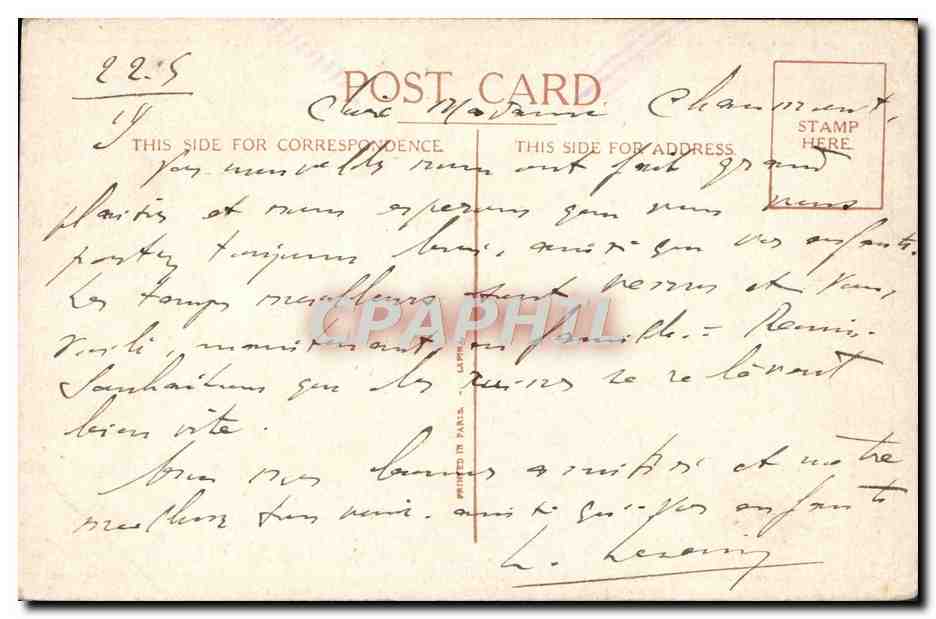 22.5
19
POST CARD
Chère Madame Chaumont,
STAMP
HERE.
THIS SIDE FOR CORRESPONDENCE.
THIS SIDE FOR ADDRESS.
Vos nouvelles nous ont fait grand
plaisir et nous esperons que vous vous
portez toujours bien, ainsi que vos enfants.
Les temps meilleurs sont venus et vous
voilà, maintenant, en famille =
Souhaitons que les ruines se relèvent
bien vite.
nos bonnes amitiés et notre
meilleur souvenir ainsi que vos enfants
CPAPHIL
PRINTED IN PARIS. - LAPINA